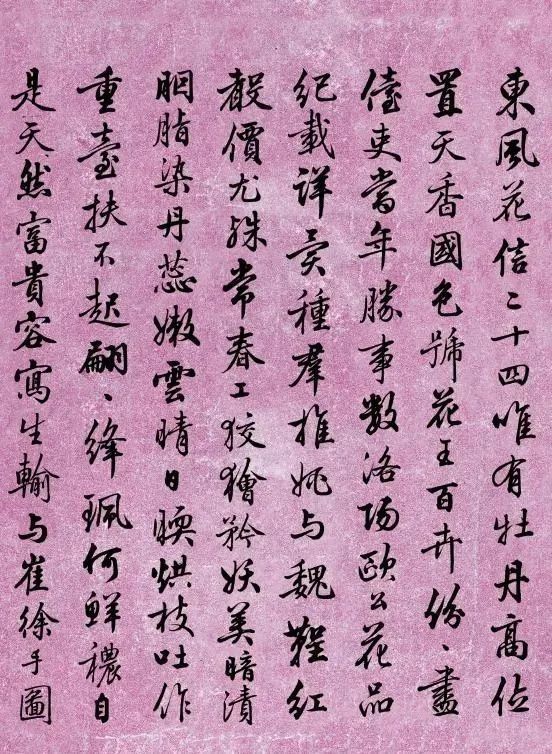 東風花信二十四唯有牡丹高位
置天香國色號花王百卉份、盡
儓吏當年勝事數洛陽歐公花品
紀載詳異種羣推姚与魏鞓紅
聲價尤殊常春工狡獪矜妖美暗漬
胭脂染丹蕊嫩雲晴日暖烘枝吐作
重臺扶不起翩、絳珮何鮮穠自
是天然富貴容寫生輸与崔徐手圖